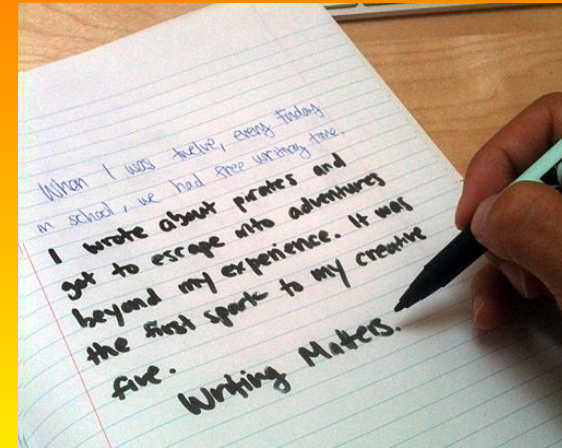 When I was twelve, every Friday
in school, we had free writing time.
I wrote about pirates and
got to escape into adventures
beyond my experience. It was
the first spark to my creative
fire.
Writing Matters.